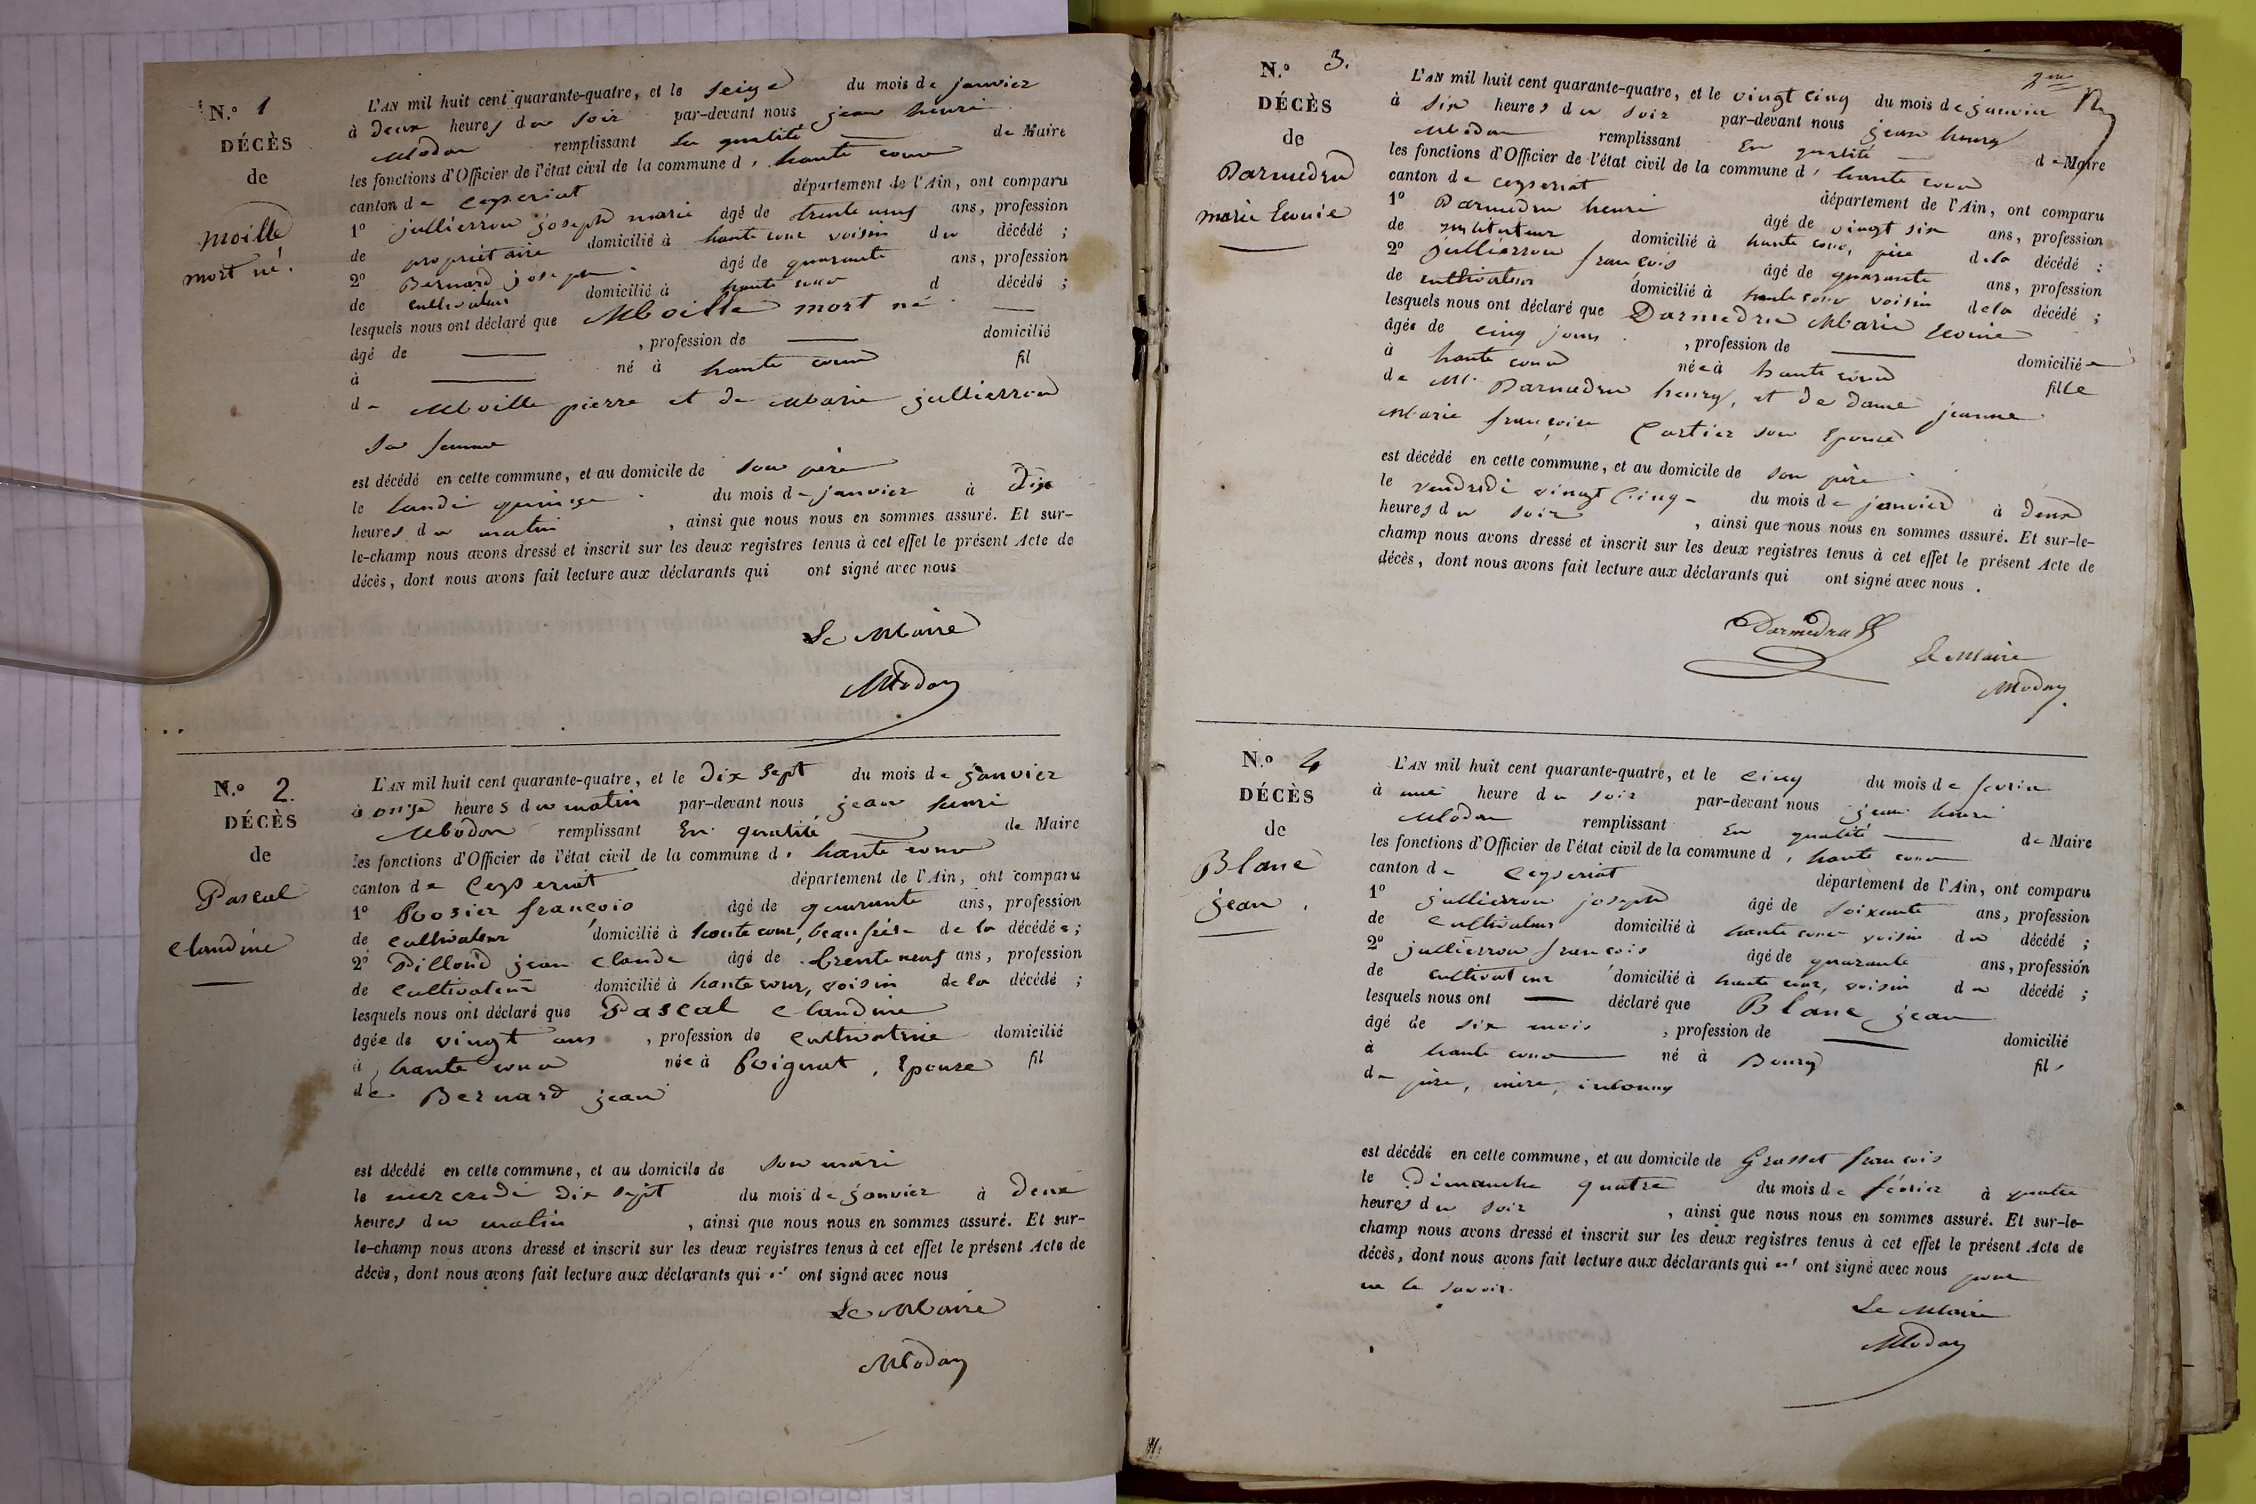 N.º 1
DÉCÈS
de
Moille
mort né.
L'AN mil huit cent quarante-quatre, et le seize du mois de janvier
à deux heures du soir par-devant nous jean henri
Modon remplissant en qualité de Maire
les fonctions d'Officier de l'état civil de la commune d'haute cour
canton de ceyseriat département de l'Ain, ont comparu
1º jullierron joseph marie âgé de trente neuf ans, profession
de propriétaire domicilié à haute cour voisin du décédé ;
2º Bernard joseph âgé de quarante ans, profession
de cultivateur domicilié à haute cour d décédé ;
lesquels nous ont déclaré que Moille mort né
âgé de , profession de domicilié
à né à haute cour fil
de Moille pierre et de Marie jullierron
sa femme
est décédé en cette commune, et au domicile de son père
le lundi quinze du mois de janvier à dix
heures du matin , ainsi que nous nous en sommes assuré. Et sur-
le-champ nous avons dressé et inscrit sur les deux registres tenus à cet effet le présent Acte de
décès, dont nous avons fait lecture aux déclarants qui ont signé avec nous
Le Maire
Modon
N.º 2.
DÉCÈS
de
Pascal
claudine
L'AN mil huit cent quarante-quatre, et le dix sept du mois de janvier
à onze heures du matin par-devant nous jean henri
Modon remplissant En qualité de Maire
les fonctions d'Officier de l'état civil de la commune d'haute cour
canton de Ceyseriat département de l'Ain, ont comparu
1º Rosier françois âgé de quarante ans, profession
de cultivateur domicilié à haute cour, beau frère de la décédée ;
2º Pilloud jean claude âgé de trente neuf ans, profession
de cultivateur domicilié à haute cour, voisin de la décédé ;
lesquels nous ont déclaré que Pascal claudine
âgée de vingt ans , profession de cultivatrice domicilié
à haute cour née à Roignat, Epouse fil
de Bernard jean
est décédé en cette commune, et au domicile de son mari
le mercredi dix sept du mois de janvier à deux
heures du matin , ainsi que nous nous en sommes assuré. Et sur-
le-champ nous avons dressé et inscrit sur les deux registres tenus à cet effet le présent Acte de
décès, dont nous avons fait lecture aux déclarants qui n' ont signé avec nous
Le Maire
Modon
2me
N.º 3.
DÉCÈS
de
Darmedru
marie Leonie
L'AN mil huit cent quarante-quatre, et le vingt cinq du mois de janvier
à six heures du soir par-devant nous jean henry
Modon remplissant En qualité de Maire
les fonctions d'Officier de l'état civil de la commune d'haute cour
canton de ceyseriat département de l'Ain, ont comparu
1º Darmedru henri âgé de vingt six ans, profession
de instituteur domicilié à haute cour, père de la décédé ;
2º jullierron françois âgé de quarante ans, profession
de cultivateur domicilié à haute cour voisin de la décédé ;
lesquels nous ont déclaré que Darmedru Marie Leonie
âgée de cinq jours , profession de domiciliée
à haute cour née à haute cour fille
de Mr. Darmedru henry, et de dame jeanne
Marie françoise Cartier son Epouse
est décédé en cette commune, et au domicile de son père
le vendredi vingt Cinq du mois de janvier à deux
heures du soir , ainsi que nous nous en sommes assuré. Et sur-le-
champ nous avons dressé et inscrit sur les deux registres tenus à cet effet le présent Acte de
décès, dont nous avons fait lecture aux déclarants qui ont signé avec nous.
Darmedru
Le Maire
Modon
N.º 4
DÉCÈS
de
Blanc
jean.
L'AN mil huit cent quarante-quatre, et le cinq du mois de fevrier
à une heure du soir par-devant nous jean henri
Modon remplissant En qualité de Maire
les fonctions d'Officier de l'état civil de la commune d'haute cour
canton de ceyseriat département de l'Ain, ont comparu
1º jullierron joseph âgé de soixante ans, profession
de cultivateur domicilié à haute cour voisin du décédé ;
2º jullierron françois âgé de quarante ans, profession
de cultivateur domicilié à haute cour, voisin du décédé ;
lesquels nous ont déclaré que Blanc jean
âgé de six mois , profession de domicilié
à haute cour né à Bourg fils
de père, mère, inconnus
est décédé en cette commune, et au domicile de Grasset françois
le Dimanche quatre du mois de février à quatre
heures du soir , ainsi que nous nous en sommes assuré. Et sur-le-
champ nous avons dressé et inscrit sur les deux registres tenus à cet effet le présent Acte de
décès, dont nous avons fait lecture aux déclarants qui n' ont signé avec nous pour
ne le savoir.
Le Maire
Modon